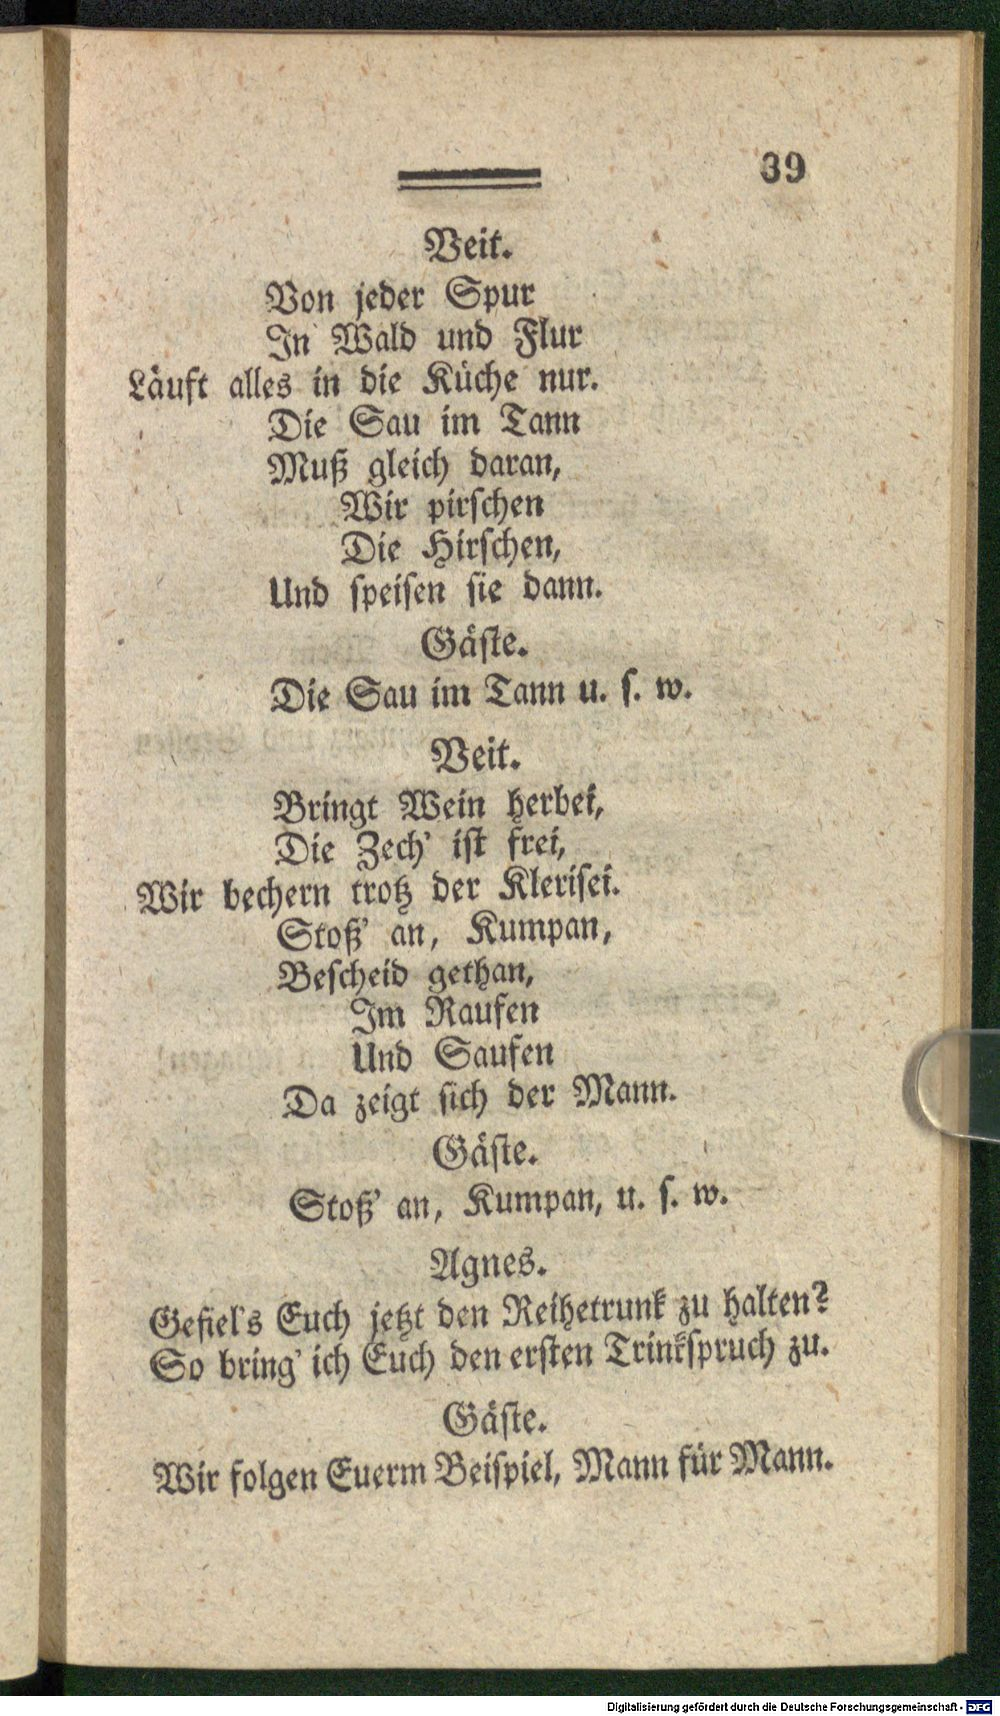 39
Veit.
Von jeder Spur
In Wald und Flur
Läuft alles in die Küche nur.
Die Sau im Tann
Muß gleich daran,
Wir pirschen
Die Hirschen,
Und speisen sie dann.
Gäste.
Die Sau im Tann u. s. w.
Veit.
Bringt Wein herbei,
Die Zech' ist frei,
Wir bechern trotz der Klerisei.
Stoß' an, Kumpan,
Bescheid gethan,
Im Raufen
Und Saufen
Da zeigt sich der Mann.
Gäste.
Stoß' an, Kumpan, u. s. w.
Agnes.
Gefiel's Euch jetzt den Reihetrunk zu halten?
So bring' ich Euch den ersten Trinkspruch zu.
Gäste.
Wir folgen Euerm Beispiel, Mann für Mann.
Digitalisierung gefördert durch die Deutsche Forschungsgemeinschaft - DFG